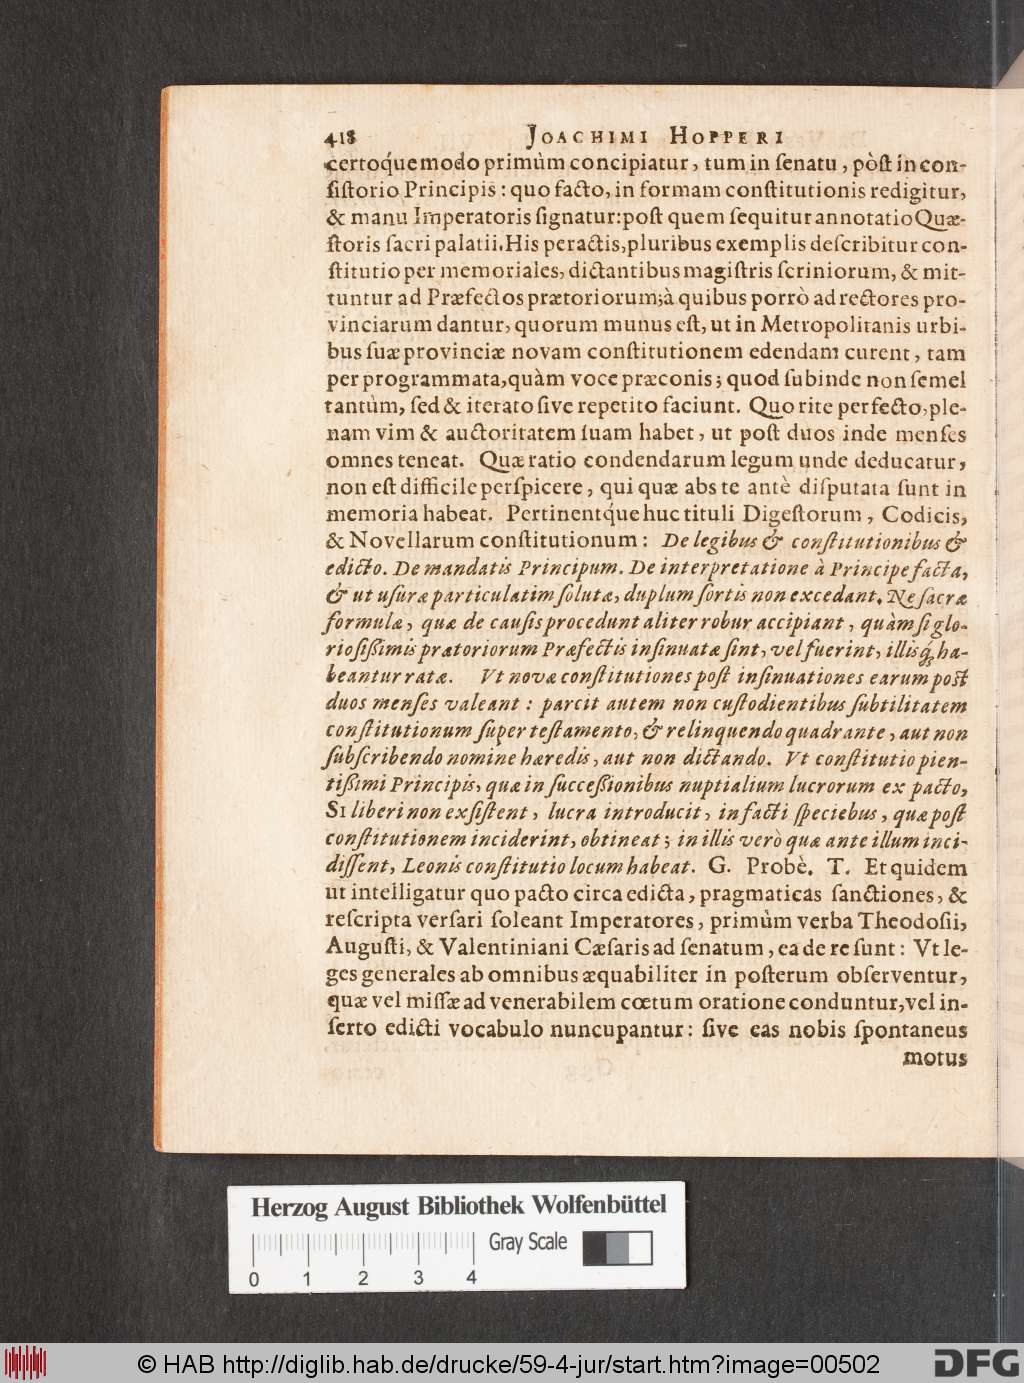 418 JOACHIMI HOPPERI
certoq́ue modo primùm concipiatur, tum in ſenatu, pòſt in con-
ſiſtorio Principis: quo facto, in formam conſtitutionis redigitur,
& manu Imperatoris ſignatur: poſt quem ſequitur annotatio Quæ-
ſtoris ſacri palatii. His peractis, pluribus exemplis deſcribitur con-
ſtitutio per memoriales, dictantibus magiſtris ſcriniorum, & mit-
tuntur ad Præfectos prætoriorum; à quibus porrò ad rectores pro-
vinciarum dantur, quorum munus eſt, ut in Metropolitanis urbi-
bus ſuæ provinciæ novam conſtitutionem edendam curent, tam
per programmata, quàm voce præconis; quod ſubinde non ſemel
tantùm, ſed & iterato ſive repetito faciunt. Quo rite perfecto, ple-
nam vim & auctoritatem ſuam habet, ut poſt duos inde menſes
omnes teneat. Quæ ratio condendarum legum unde deducatur,
non eſt difficile perſpicere, qui quæ abs te antè diſputata ſunt in
memoria habeat. Pertinentq́ue huc tituli Digeſtorum, Codicis,
& Novellarum conſtitutionum: De legibus & conſtitutionibus &
edicto. De mandatis Principum. De interpretatione à Principe facta,
& ut uſuræ particulatim ſolutæ, duplum ſortis non excedant. Ne ſacræ
formulæ, quæ de cauſis procedunt aliter robur accipiant, quàm ſi glo-
rioſiſſimis prætoriorum Præfectis inſinuatæ ſint, vel fuerint, illisq́; ha-
beantur ratæ. Vt novæ conſtitutiones poſt inſinuationes earum poſt
duos menſes valeant: parcit autem non cuſtodientibus ſubtilitatem
conſtitutionum ſuper teſtamento, & relinquendo quadrante, aut non
ſubſcribendo nomine hæredis, aut non dictando. Vt conſtitutio pien-
tiſſimi Principis, quæ in ſucceſſionibus nuptialium lucrorum ex pacto,
SI liberi non exſiſtent, lucra introducit, in facti ſpeciebus, quæ poſt
conſtitutionem inciderint, obtineat; in illis verò quæ ante illum inci-
diſſent, Leonis conſtitutio locum habeat. G. Probè. T. Et quidem
ut intelligatur quo pacto circa edicta, pragmaticas ſanctiones, &
reſcripta verſari ſoleant Imperatores, primùm verba Theodoſii,
Auguſti, & Valentiniani Cæſaris ad ſenatum, ea de re ſunt: Vt le-
ges generales ab omnibus æquabiliter in poſterum obſerventur,
quæ vel miſſæ ad venerabilem cœtum oratione conduntur, vel in-
ſerto edicti vocabulo nuncupantur: ſive eas nobis ſpontaneus
motus
Herzog August Bibliothek Wolfenbüttel
Gray Scale
0 1 2 3 4
© HAB http://diglib.hab.de/drucke/59-4-jur/start.htm?image=00502
DFG